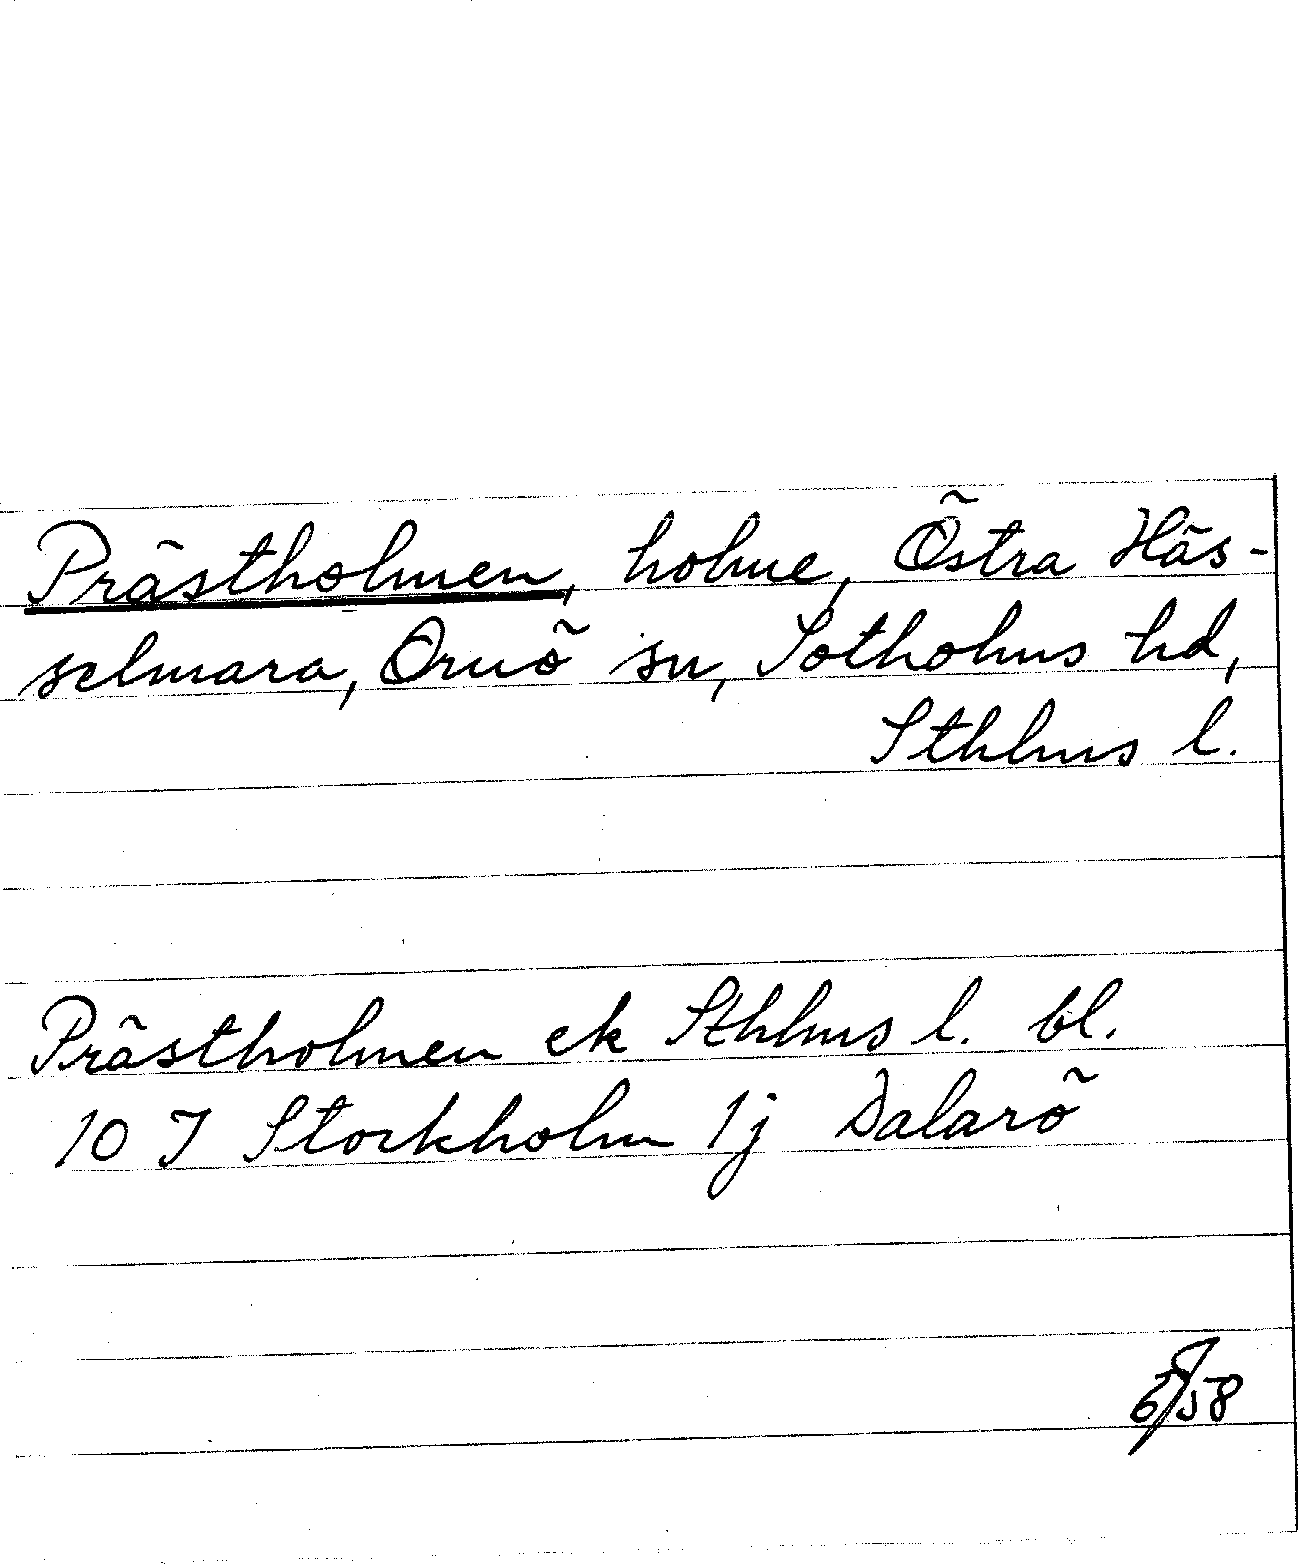 Prästholmen, holme, Östra Häs-
selmara, Ornö sn, Sotholms hd,
Sthlms l.
Prästholmen ek Sthlms l. bl.
10 J Stockholm 1j Dalarö
58